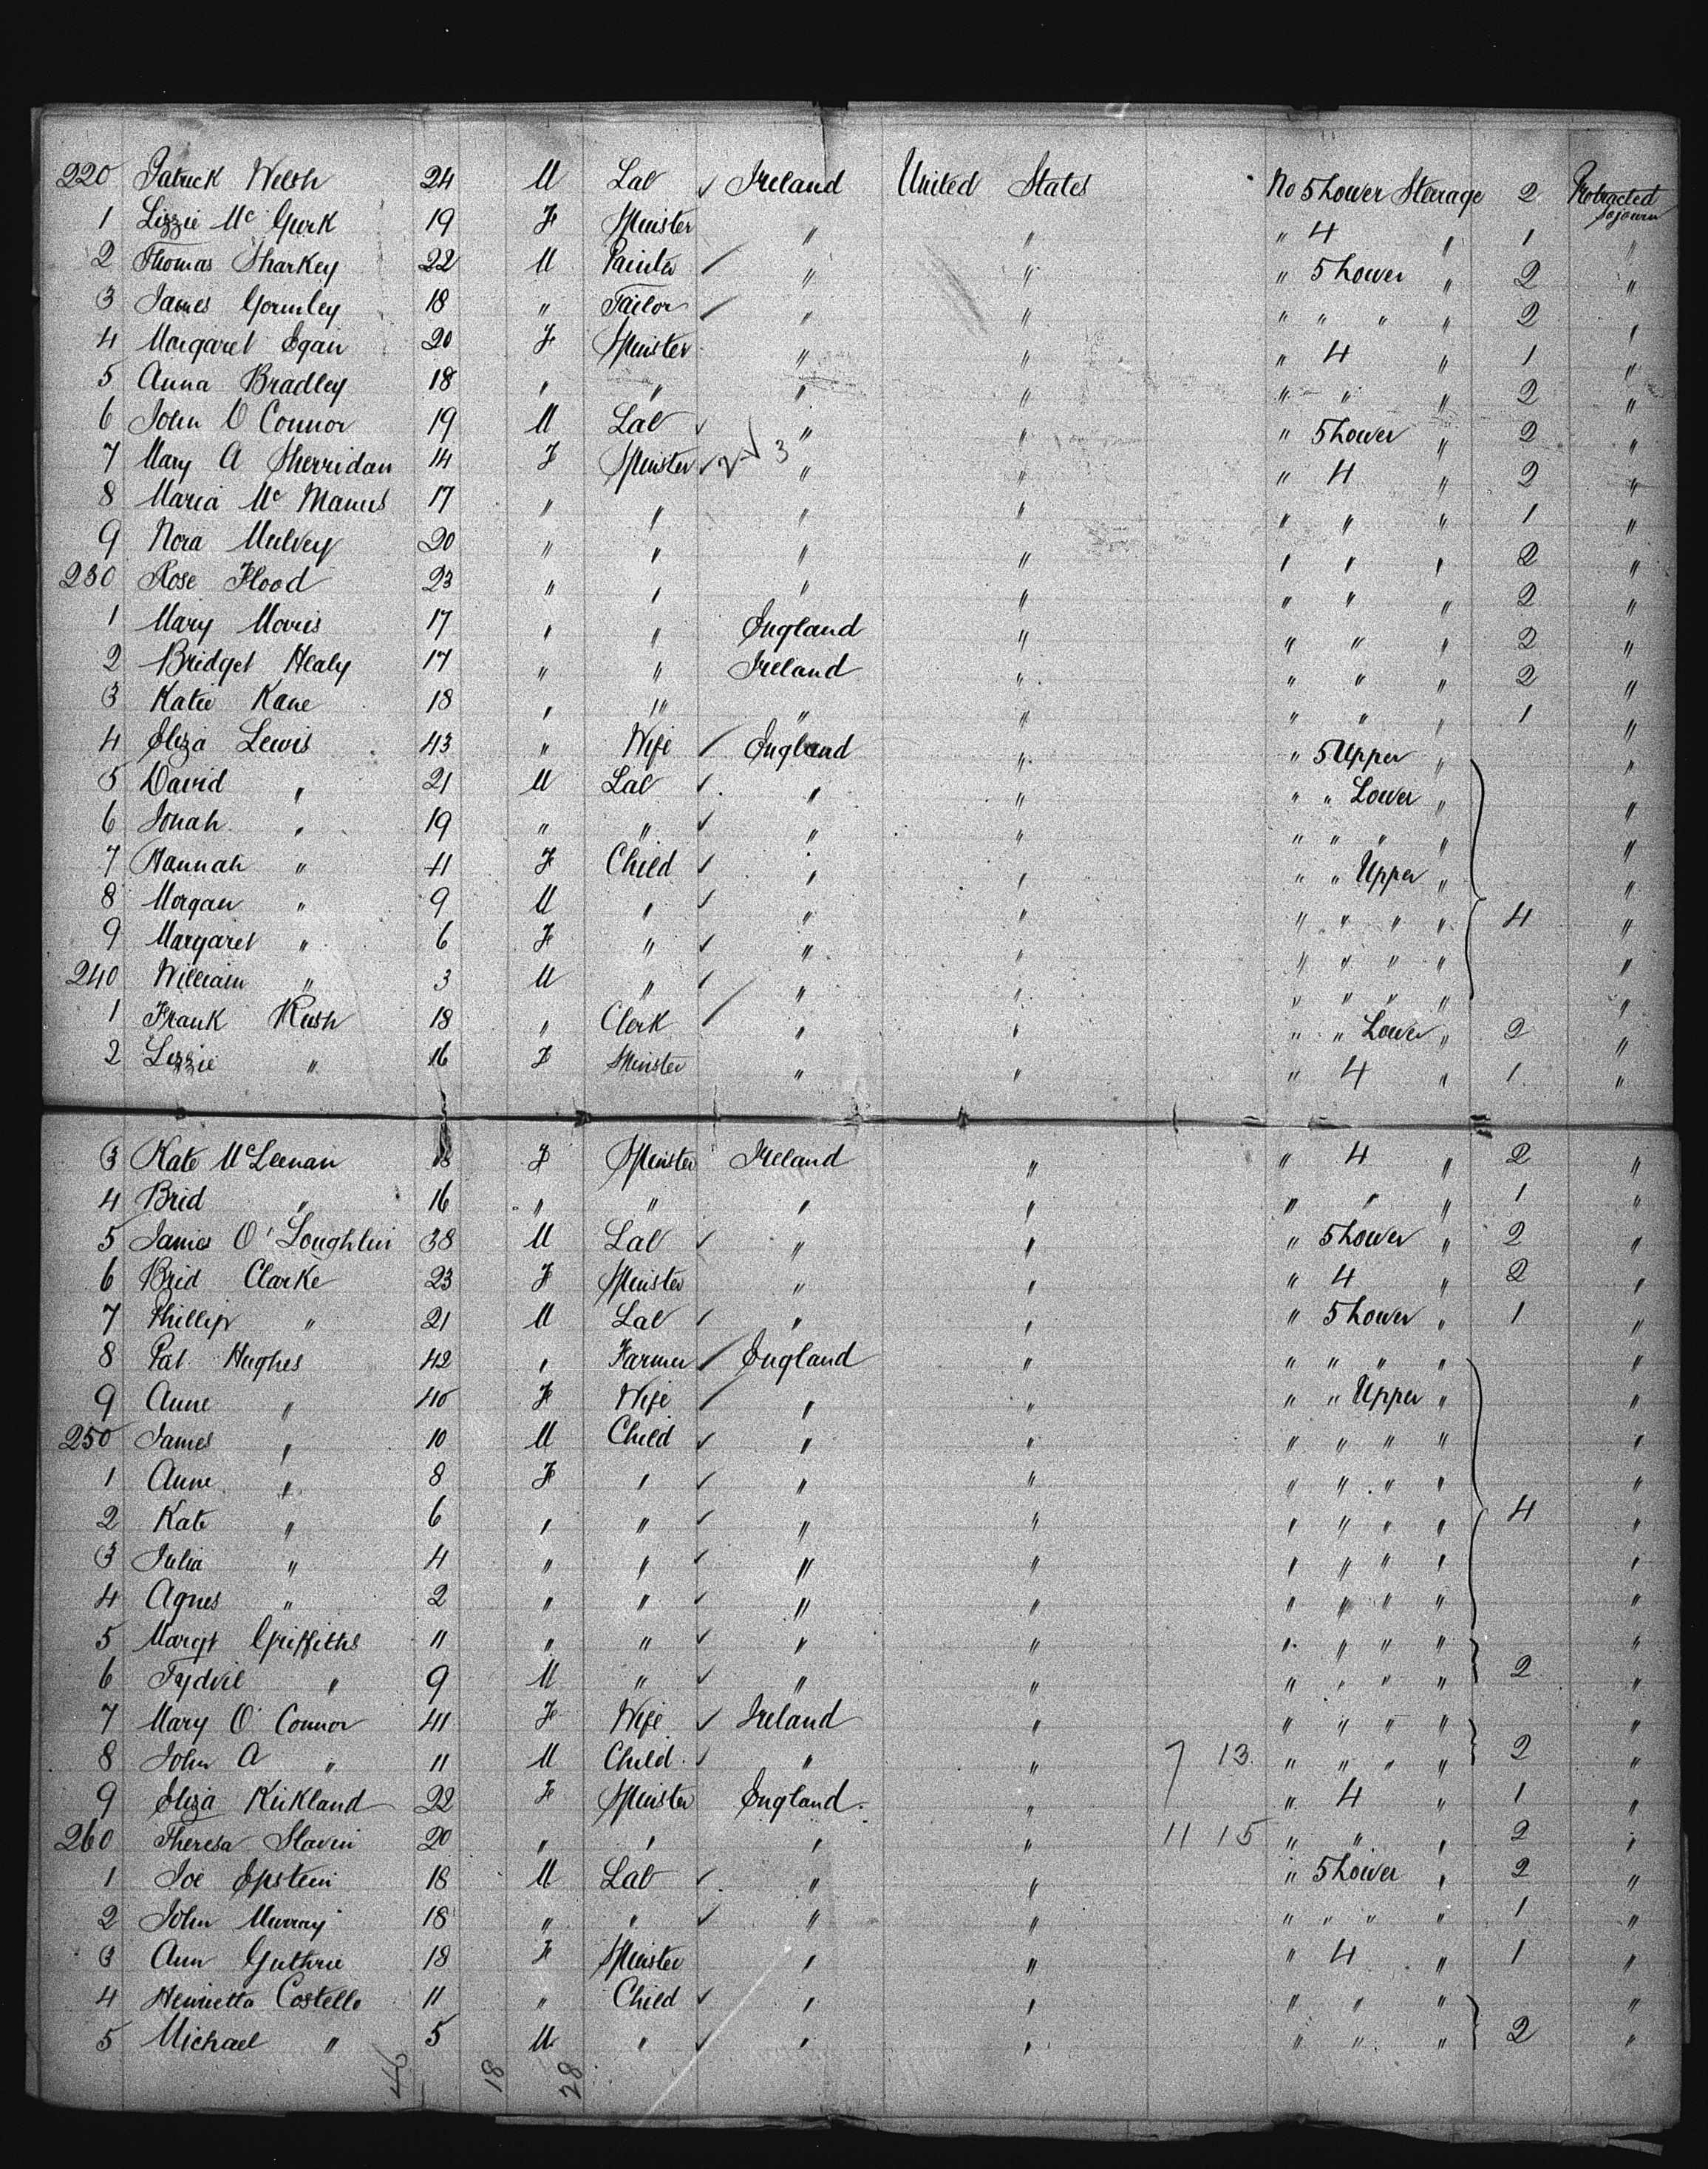 220 Patrick Welsh 24 M Lab ✓ Ireland United States No 5 Lower Steerage 2 Protracted Sojourn
1 Lizzie Mc Gurk 19 F Spinster " " " 4 " 1 "
2 Thomas Sharkey 22 M Painter ✓ " " " 5 Lower " 2 "
3 James Gormley 18 " Tailor ✓ " " " " " " 2 "
4 Margaret Egan 20 F Spinster " " " 4 " 1 "
5 Anna Bradley 18 " " " " " " " 2 "
6 John O Connor 19 M Lab ✓ " " " 5 Lower " 2 "
7 Mary A Sherridan 14 F Spinster ✓ 2 ✓ 3 " " " 4 " 2 "
8 Maria Mc Manus 17 " " " " " " " 1 "
9 Nora Mulvey 20 " " " " " " " 2 "
230 Rose Flood 23 " " " " " " " 2 "
1 Mary Morris 17 " " England " " " " 2 "
2 Bridget Healy 17 " " Ireland " " " " 2 "
3 Katie Kane 18 " " " " " " " 1 "
4 Eliza Lewis 43 " Wife ✓ England " " 5 Upper " "
5 David " 21 M Lab ✓ " " " " Lower " "
6 Jonah " 19 " " ✓ " " " " " " "
7 Hannah " 11 F Child ✓ " " " " Upper " "
8 Morgan " 9 M " ✓ " " " " " " 4 "
9 Margaret " 6 F " ✓ " " " " " " "
240 William " 3 M " ✓ " " " " " " "
1 Frank Rush 18 " Clerk ✓ " " " " Lower " 2 "
2 Lizzie " 16 F Spinster " " " 4 " 1 "
3 Kate McLeenan 18 F Spinster Ireland " " 4 " 2 "
4 Brid " 16 " " " " " " " 1 "
5 James O'Loughlin 38 M Lab ✓ " " " 5 Lower " 2 "
6 Brid Clarke 23 F Spinster " " " 4 " 2 "
7 Phillip " 21 M Lab ✓ " " " 5 Lower " 1 "
8 Pat Hughes 42 " Farmer ✓ England " " " " " "
9 Anne " 40 F Wife ✓ " " " " Upper " "
250 James " 10 M Child ✓ " " " " " " "
1 Anne " 8 F " ✓ " " " " " " "
2 Kate " 6 " " ✓ " " " " " " 4 "
3 Julia " 4 " " ✓ " " " " " " "
4 Agnes " 2 " " ✓ " " " " " " "
5 Margt Griffiths 11 " " ✓ " " " " " " "
6 Tydvil " 9 M " ✓ " " " " " " 2 "
7 Mary O' Connor 41 F Wife ✓ Ireland " " " " " "
8 John A " 11 M Child ✓ " " 7 13 " " " " 2 "
9 Eliza Kirkland 22 F Spinster England " " 4 " 1 "
260 Theresa Slavin 20 " " " " 11 15 " " " 2 "
1 Joe Epstein 18 M Lab ✓ " " " 5 Lower " 2 "
2 John Murray 18 " " ✓ " " " " " " 1 "
3 Ann Guthrie 18 F Spinster " " " 4 " 1 "
4 Henrietta Costello 11 " Child ✓ " " " " " "
5 Michael " 5 M " ✓ " " " " " 2 "
46 18 28